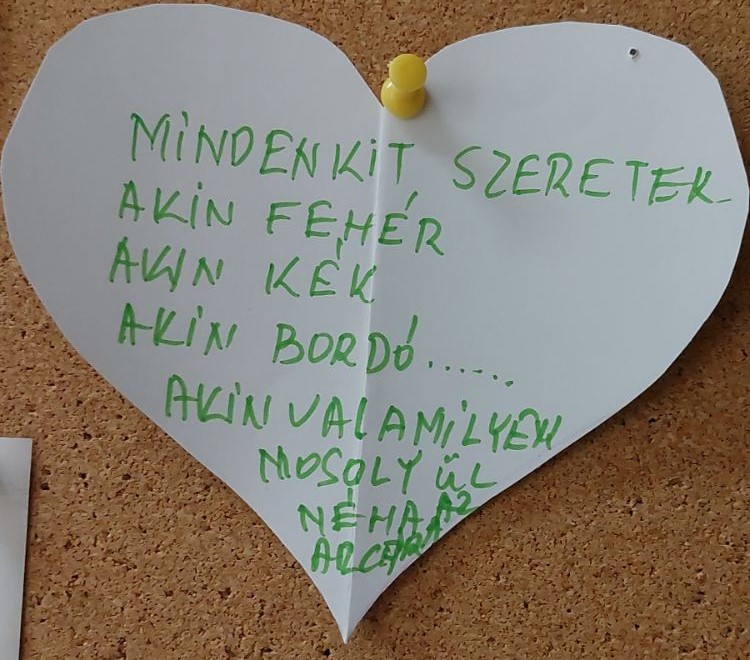 MINDENKIT SZERETEK
AKIN FEHÉR
AKIN KÉK
AKIN BORDÓ......
AKIN VALAMILYEN
MOSOLY ÜL
NÉHA AZ
ARCÁRA